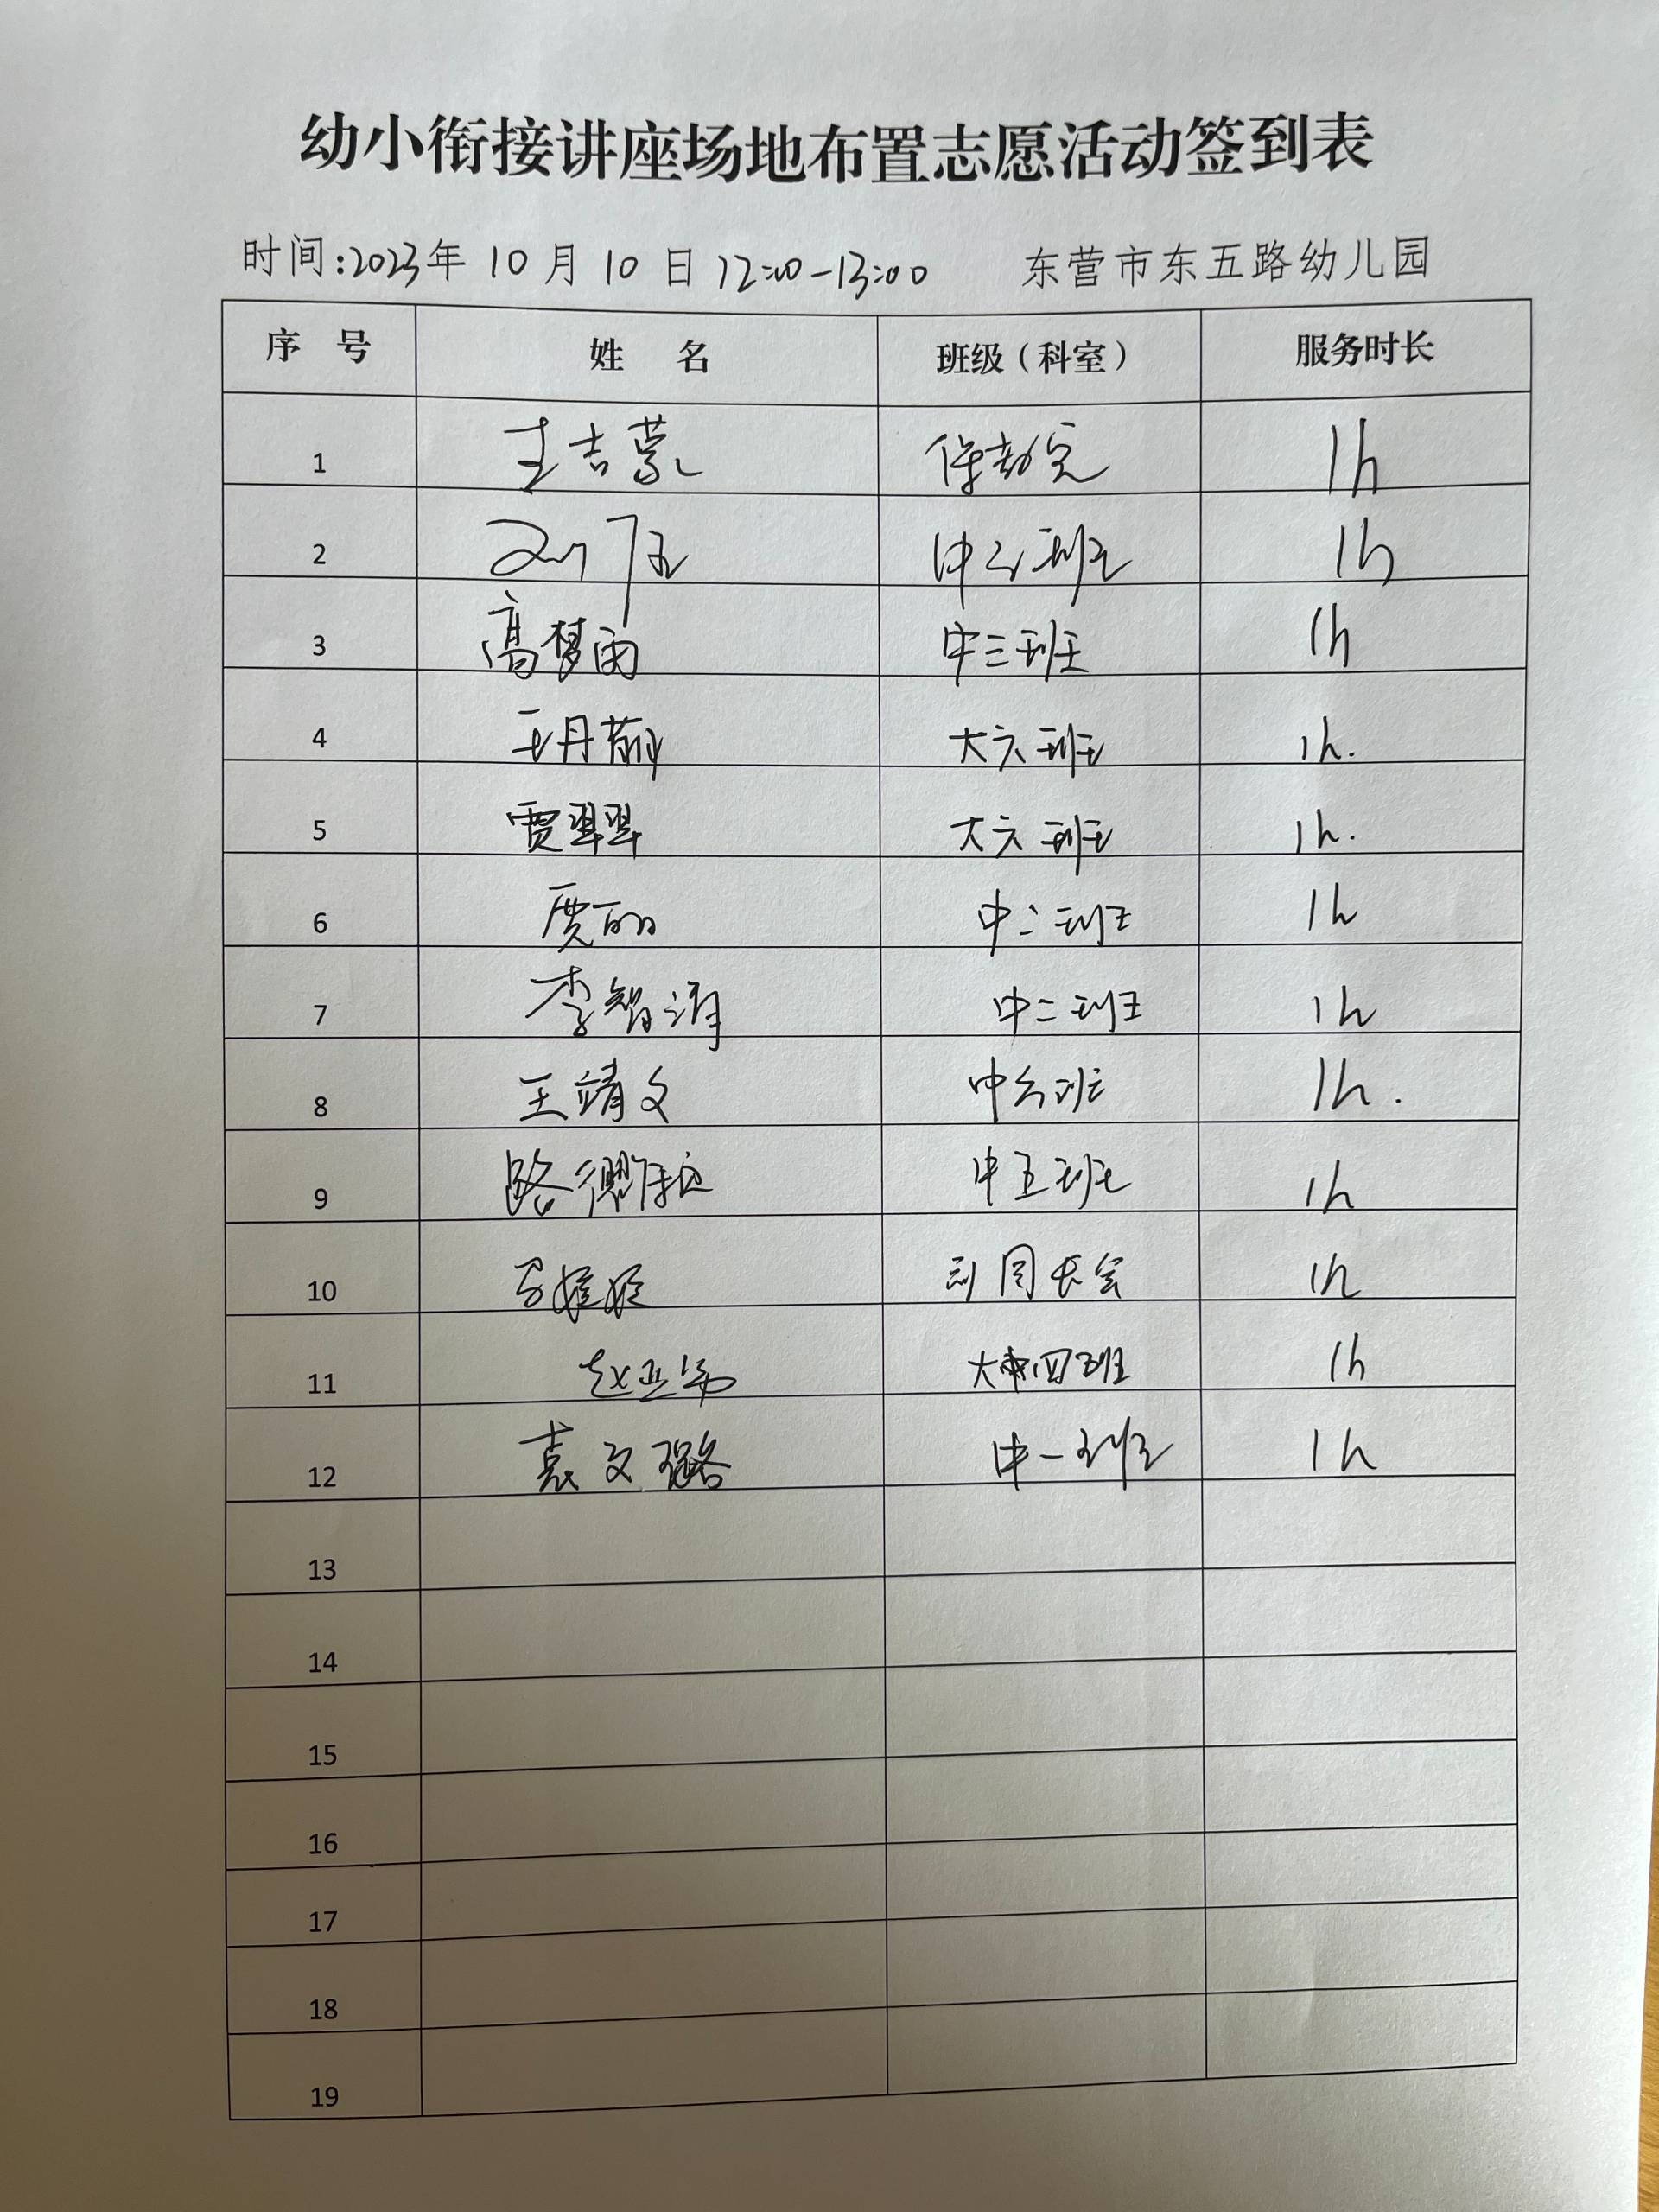 幼小衔接讲座场地布置志愿活动签到表
时间:2023年 10 月 10 日 12:00-13:00 东营市东五路幼儿园
序 号 姓 名 班级(科室) 服务时长
1 王吉蒙 保教室 1h
2 1h
3 高梦雨 中三班 1h
4 王丹 大六班 1h.
5 贾翠翠 大六班 1h.
6 贾丽 中二班 1h
7 李智 中二班 1h
8 王靖文 中六班 1h.
9 路 中五班 1h
10 1h
11 赵亚 大四班 1h
12 袁文璐 中一班 1h
13
14
15
16
17
18
19